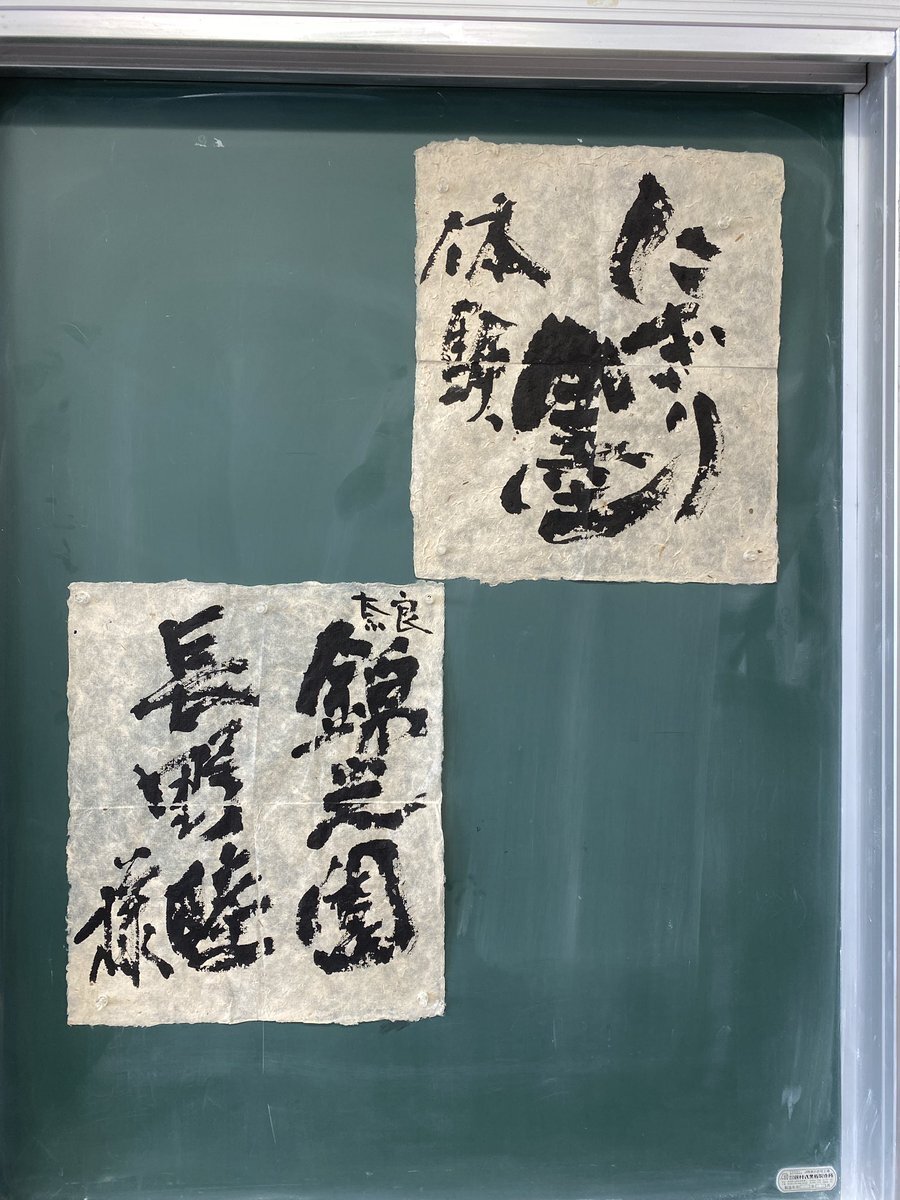 にぎり
墨
体験
奈良
錦光園
長野睦
様